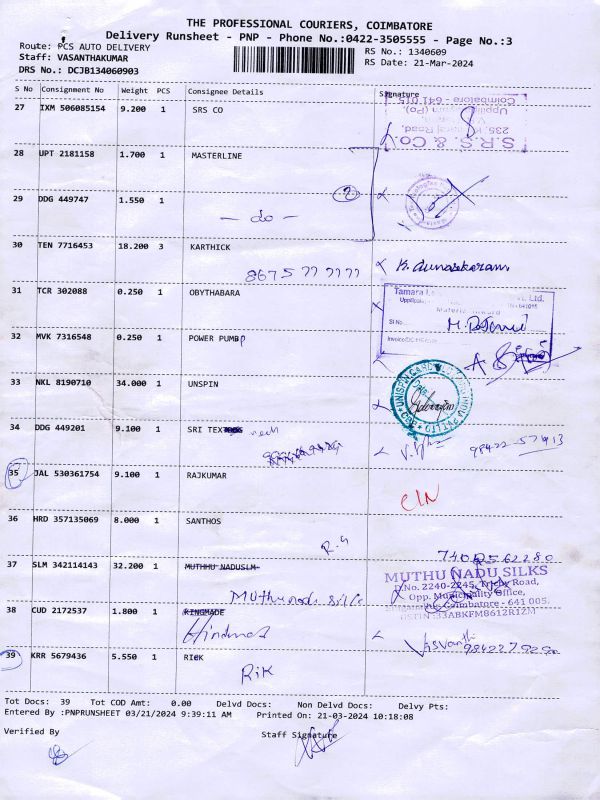 THE PROFESSIONAL COURIERS, COIMBATORE
Delivery Runsheet - PNP - Phone No.:0422-3505555 - Page No.:3
Route: PCS AUTO DELIVERY RS No.: 1340609
Staff: VASANTHAKUMAR RS Date: 21-Mar-2024
DRS No.: DCJB134060903
S No Consignment No Weight PCS Consignee Details Signature
27 IXM 506085154 9.200 1 SRS CO
S.R.S. & Co.
235, Kamaraj Road,
Uppilipalayam (Po),
Coimbatore - 641 015
28 UPT 2181158 1.700 1 MASTERLINE
29 DDG 449747 1.550 1
- do - 2
30 TEN 7716453 18.200 3 KARTHICK
8675 77 7777 K. Gunasekaran
31 TCR 302088 0.250 1 OBYTHABARA
Tamara Ltd.
Material Inward
Sl No.
32 MVK 7316548 0.250 1 POWER PUMBP
33 NKL 8190710 34.000 1 UNSPIN
34 DDG 449201 9.100 1 SRI TEX
98422 57913
35 JAL 530361754 9.100 1 RAJKUMAR
C/N
36 HRD 357135069 8.000 1 SANTHOS
R.S
37 SLM 342114143 32.200 1 MUTHHU NADUSLM
Muthunadu Silks
MUTHU NADU SILKS
D.No. 2240-2245, Trichy Road,
Opp. Municipality Office,
Coimbatore - 641 005.
GSTIN:33ABKFM8612R1ZM
38 CUD 2172537 1.800 1 KINGMADE
Viswanth
39 KRR 5679436 5.550 1 RICK
RiK
Tot Docs: 39 Tot COD Amt: 0.00 Delvd Docs: Non Delvd Docs: Delvy Pts:
Entered By :PNPRUNSHEET 03/21/2024 9:39:11 AM Printed On: 21-03-2024 10:18:08
Verified By Staff Signature